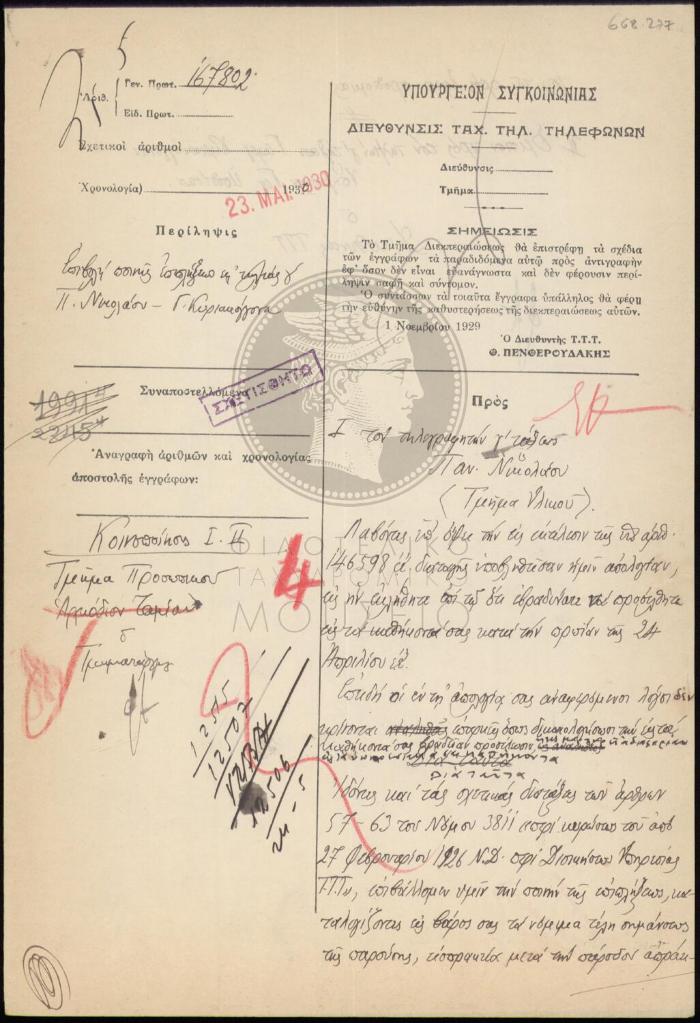 668.277
Ἀριθ.
Γεν. Πρωτ. 167802.
Εἰδ. Πρωτ.
Σχετικοὶ ἀριθμοὶ
Χρονολογία) 193
23. ΜΑΪ. 1930
Περίληψις
Ἐπιβολὴ ποινῆς ἐπιπλήξεως
Π. Νικολάου – Γ.
ΥΠΟΥΡΓΕΙΟΝ ΣΥΓΚΟΙΝΩΝΙΑΣ
ΔΙΕΥΘΥΝΣΙΣ ΤΑΧ. ΤΗΛ. ΤΗΛΕΦΩΝΩΝ
Διεύθυνσις
Τμῆμα
ΣΗΜΕΙΩΣΙΣ
Τὸ Τμῆμα Διεκπεραιώσεως θὰ ἐπιστρέφῃ τὰ σχέδια
τῶν ἐγγράφων τὰ παραδιδόμενα αὐτῷ πρὸς ἀντιγραφὴν
ἐφ' ὅσον δὲν εἶναι εὐανάγνωστα καὶ δὲν φέρουσιν περί-
ληψιν σαφῆ καὶ σύντομον.
Ὁ συντάσσων τὰ τοιαῦτα ἔγγραφα ὑπάλληλος θὰ φέρῃ
τὴν εὐθύνην τῆς καθυστερήσεως τῆς διεκπεραιώσεως αὐτῶν.
1 Νοεμβρίου 1929
Ὁ Διευθυντὴς Τ.Τ.Τ.
Θ. ΠΕΝΘΕΡΟΥΔΑΚΗΣ
Συναποστελλόμενα
ΣΧΕΤΙΣΘΗΤΩ
19914
22454
Ἀναγραφὴ ἀριθμῶν καὶ χρονολογίας
ἀποστολῆς ἐγγράφων:
Κοινοποίησις Ι. Π
Τμῆμα Προσωπικοῦ
Ἁρμόδιον Ταμίαν
4
12515
12507
12506
Πρὸς
Ι τὸν τηλεγραφητὴν γ' τάξεως
Παν. Νικολάου
(Τμῆμα Ὑλικοῦ).
Λαβόντες ὑπ' ὄψει τὴν εἰς ἐκτέλεσιν τῆς ὑπ' ἀριθ.
146598 ἐ.ἔ. διαταγῆς ὑποβληθεῖσαν ἡμῖν ἀπολογίαν,
εἰς ἣν ἐκλήθητε ἐπὶ τῷ ὅτι ἐβραδύνατε νὰ προσέλθητε
εἰς τὰ καθήκοντά σας κατὰ τὴν πρωίαν τῆς 24
Ἀπριλίου ἐ.ἔ.
Ἐπειδὴ οἱ ἐν τῇ ἀπολογίᾳ σας ἀναφερόμενοι λόγοι δὲν
κρίνονται
καθήκοντά σας
Διὰ ταῦτα
ΔΙΑ ΤΑΥΤΑ
Ἰδόντες καὶ τὰς σχετικὰς διατάξεις τῶν ἄρθρων
57-63 τοῦ Νόμου 3811 περὶ κυρώσεως τοῦ ἀπὸ
27 Φεβρουαρίου 1926 Ν.Δ. περὶ Διοικήσεως Ὑπηρεσίας
Τ.Τ.Τ., ἐπιβάλλομεν ὑμῖν τὴν ποινὴν τῆς ἐπιπλήξεως, κα-
ταλογίζοντες εἰς βάρος σας τὰ νόμιμα τέλη σημάνσεως
τῆς παρούσης, εἰσπρακτέα μετὰ τὴν πάροδον ἀπράκ-
ΦΙΛΟΤΕΛΙΚΟ
ΤΑΧΥΔΡΟΜΙΚΟ
ΜΟΥΣΕΙΟ